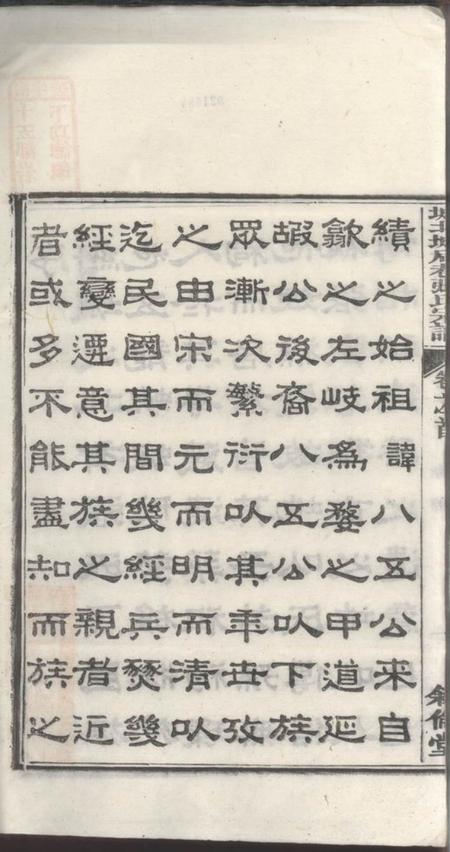 績之始祖諱八五公来自
歙之左岐爲婺之甲道延
嘏公後裔八五公以下族
眾漸次繁衍以其年世攷
之由宋而元而明而清以
迄民國其間幾經兵燹幾
經變遷意其族之親者近
者或多不能盡知而族之